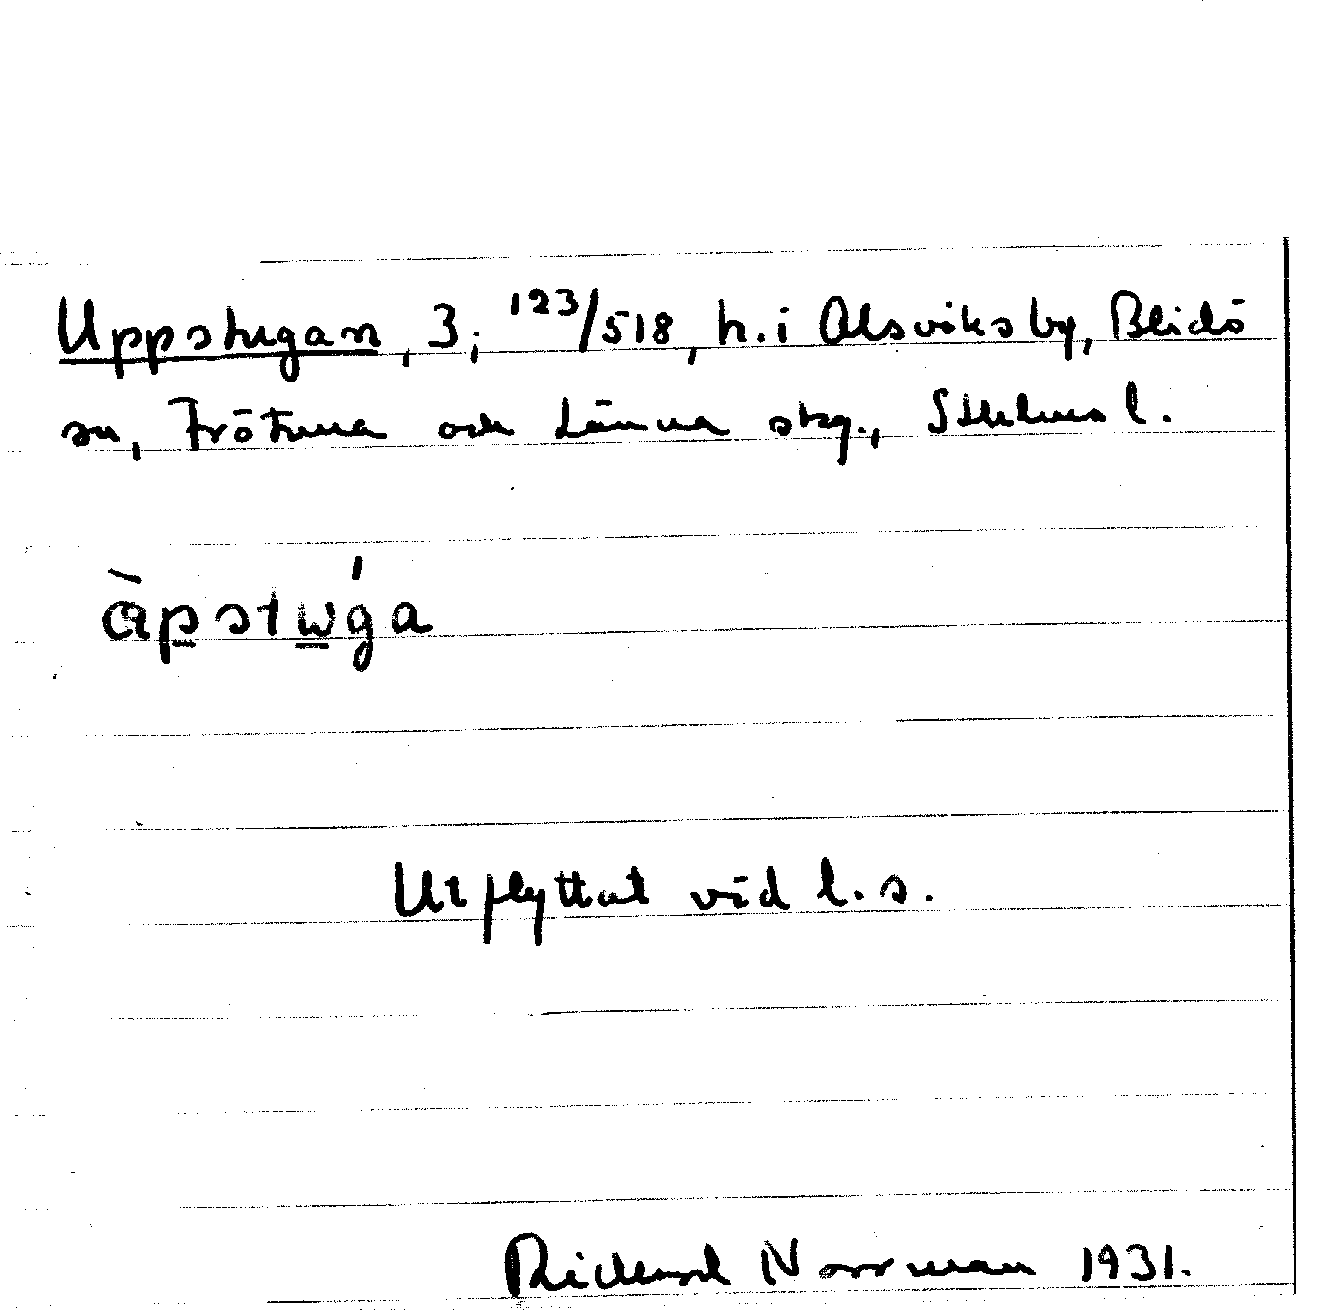 Uppstugan, 3; 123/518, h. i Alsviks by, Blidö
sn, Frötuna och Länna skg., Sthlms l.
àpstwǵa
Utflyttat vid l. s.
Rickard Norrman 1931.